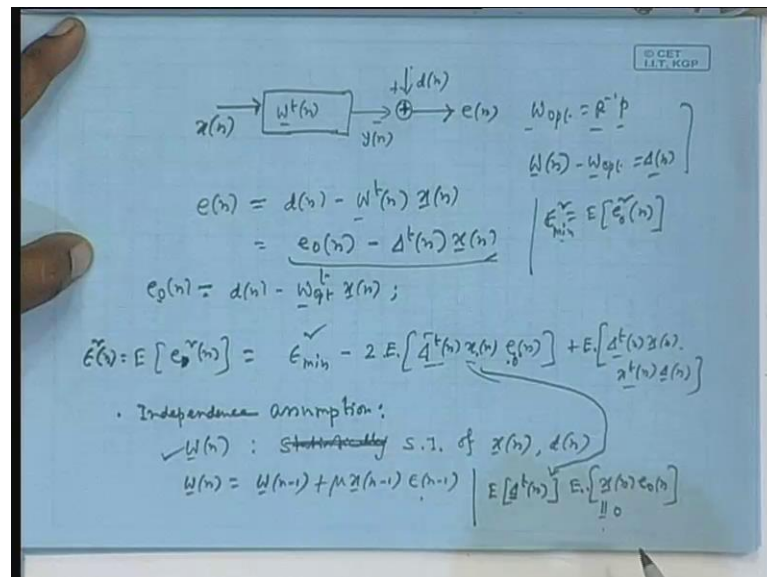 © CET
I.I.T. KGP
+ d(n)
x(n) → w^t(n) → y(n) ⊕ → e(n)
w_opt. = R^-1 p
w(n) - w_opt. = Δ(n)
e(n) = d(n) - w^t(n) x(n)
= e_0(n) - Δ^t(n) x(n)
ϵ²_min = E[e_0²(n)]
e_0(n) = d(n) - w_opt^t x(n) ;
ϵ²(n) = E[e²(n)] = ϵ²_min - 2 E.[Δ^t(n) x(n) e_0(n)] + E.[Δ^t(n) x(n).
x^t(n) Δ(n)]
. Independence assumption :
✓ w(n) : S.I. of x(n), d(n)
w(n) = w(n-1) + μ x(n-1) e(n-1)
E[Δ^t(n)] E.[x(n) e_0(n)]
|| 0